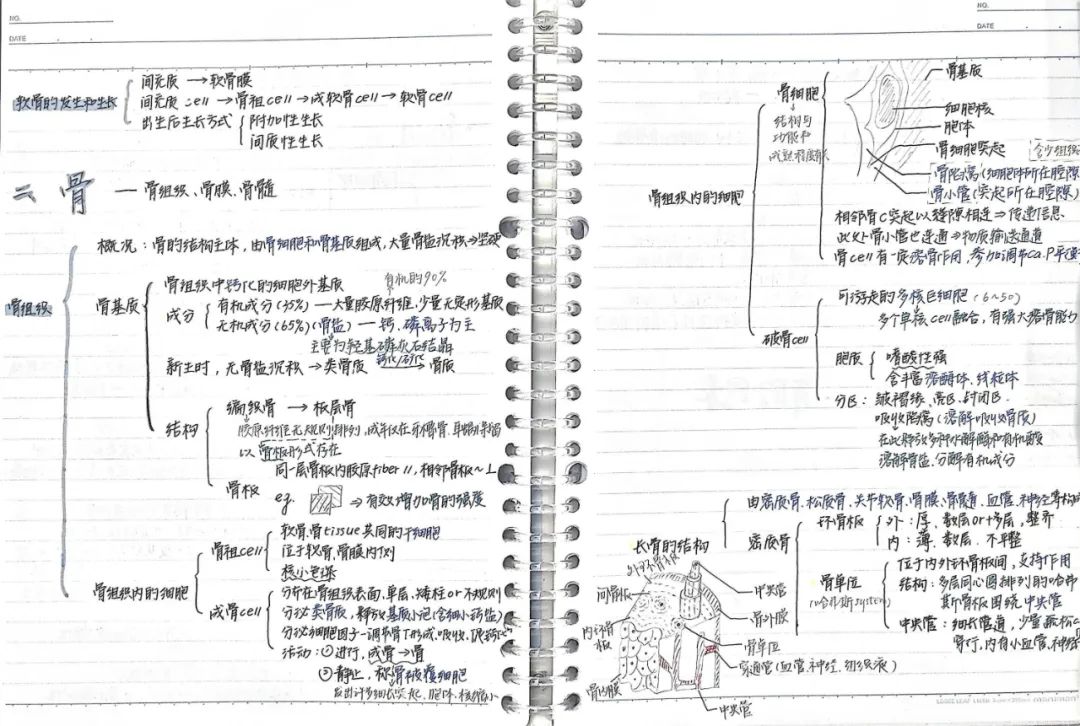 NO.
DATE
软骨的发生和生长
间充质 → 软骨膜
间充质 cell → 骨祖cell → 成软骨cell → 软骨cell
出生后生长方式
附加性生长
间质性生长
二、骨 — 骨组织、骨膜、骨髓
骨组织
概况：骨的结构主体，由骨细胞和骨基质组成，大量骨盐沉积⇒坚硬
骨基质
骨组织中钙化的细胞外基质
有机的90%
成分
有机成分(35%) — 大量胶原纤维，少量无定形基质
无机成分(65%)(骨盐) — 钙、磷离子为主
主要为羟基磷灰石结晶
新生时，无骨盐沉积 → 类骨质 钙化/矿化 → 骨质
结构
编织骨 → 板层骨
胶原纤维无规则排列，成年仅在牙槽骨
以骨板形式存在
骨板
同一层骨板内胶原fiber //，相邻骨板~⊥
e.g. ⇒有效增加骨的强度
骨组织内的细胞
骨祖cell
软骨、骨tissue共同的干细胞
位于软骨，骨膜内侧
成骨cell
分布在骨组织表面，单层，矮柱or不规则
分泌类骨质，释放基质小泡
分泌细胞因子—调节骨T形成、吸收
活动：①进行，成骨→骨
②静止，称骨被覆细胞
NO.
DATE
骨组织内的细胞
骨细胞
结构与
功能和
成熟程度有关
骨基质
细胞核
胞体
骨细胞突起
含少组织
骨陷窝(细胞体所在腔隙
骨小管(突起所在腔隙)
相邻骨C突起以缝隙相连⇒传递信息
此处骨小管也连通⇒物质输送通道
骨cell有一定溶骨作用，参加调节Ca.P平衡
破骨cell
可游走的多核巨细胞(6~50)
多个单核cell融合，有强大溶骨能力
胞质
嗜酸性强
含丰富溶酶体，线粒体
分区：皱褶缘、亮区、封闭区
吸收陷窝(溶解吸收骨质)
在此释放多种水解酶和有机酸
溶解骨盐，分解有机成分
长骨的结构
由密质骨、松质骨、关节软骨、骨膜、骨髓、血管、神经等构成
密质骨
环骨板
外：厚、数层or十多层，整齐
内：薄、数层、不平整
骨单位
(哈弗斯system)
位于内外环骨板间，支持作用
结构：多层同心圆排列的哈弗
斯骨板围绕中央管
中央管：细长管道，少量疏松
穿行，内有小血管，神经
外环骨板
间骨板
内环骨
板
骨内膜
中央管
骨外膜
骨单位
穿通管(血管、神经、组织液)
中央管